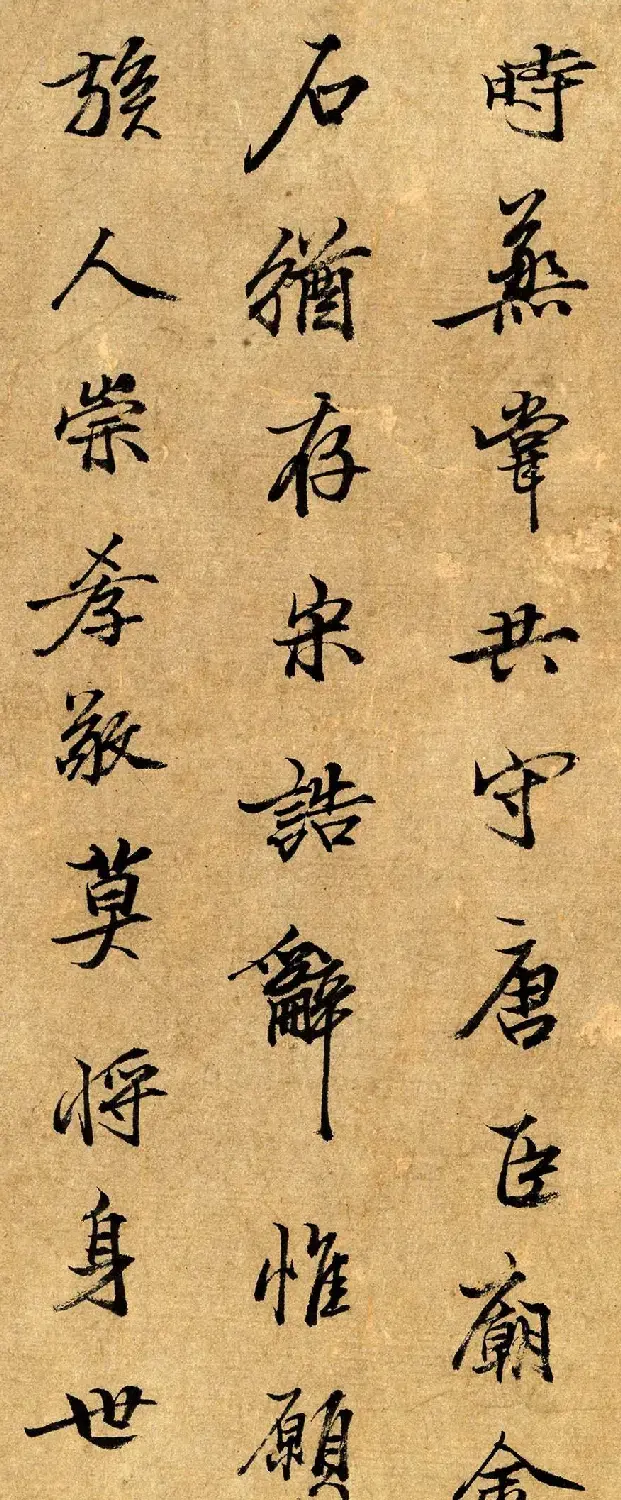 時蒸甞共守唐臣廟金
石猶存宋誥辭惟願
族人崇孝敬莫将身世